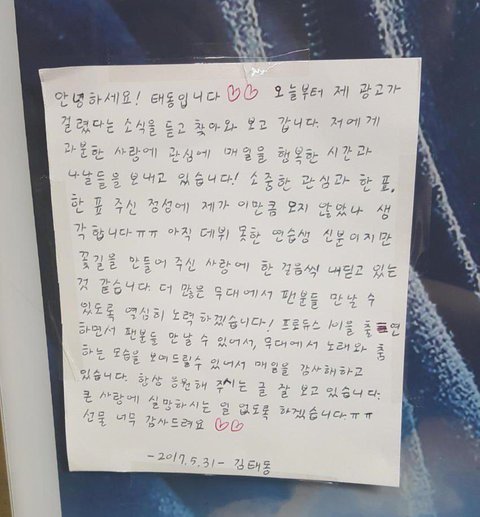 안녕하세요! 태동입니다 ♡♡ 오늘부터 제 광고가
걸렸다는 소식을 듣고 찾아와 보고 갑니다. 저에게
과분한 사랑에 관심에 매일을 행복한 시간과
나날들을 보내고 있습니다! 소중한 관심과 한 표,
한 표 주신 정성에 제가 이만큼 오지 않았나 생
각합니다ㅠㅠ 아직 데뷔 못한 연습생 신분이지만
꽃길을 만들어 주신 사랑에 한 걸음씩 내딛고 있는
것 같습니다. 더 많은 무대에서 팬분들 만날 수
있도록 열심히 노력하겠습니다! 프로듀스 101을 출연
하면서 팬분들 만날 수 있어서, 무대에서 노래와 춤
하는 모습을 보여드릴수 있어서 매일을 감사해하고
있습니다. 항상 응원해 주시는 글 잘 보고 있습니다.
큰 사랑에 실망하시는 일 없도록 하겠습니다.ㅠㅠ
선물 너무 감사드려요 ♡♡
-2017.5.31- 김태동